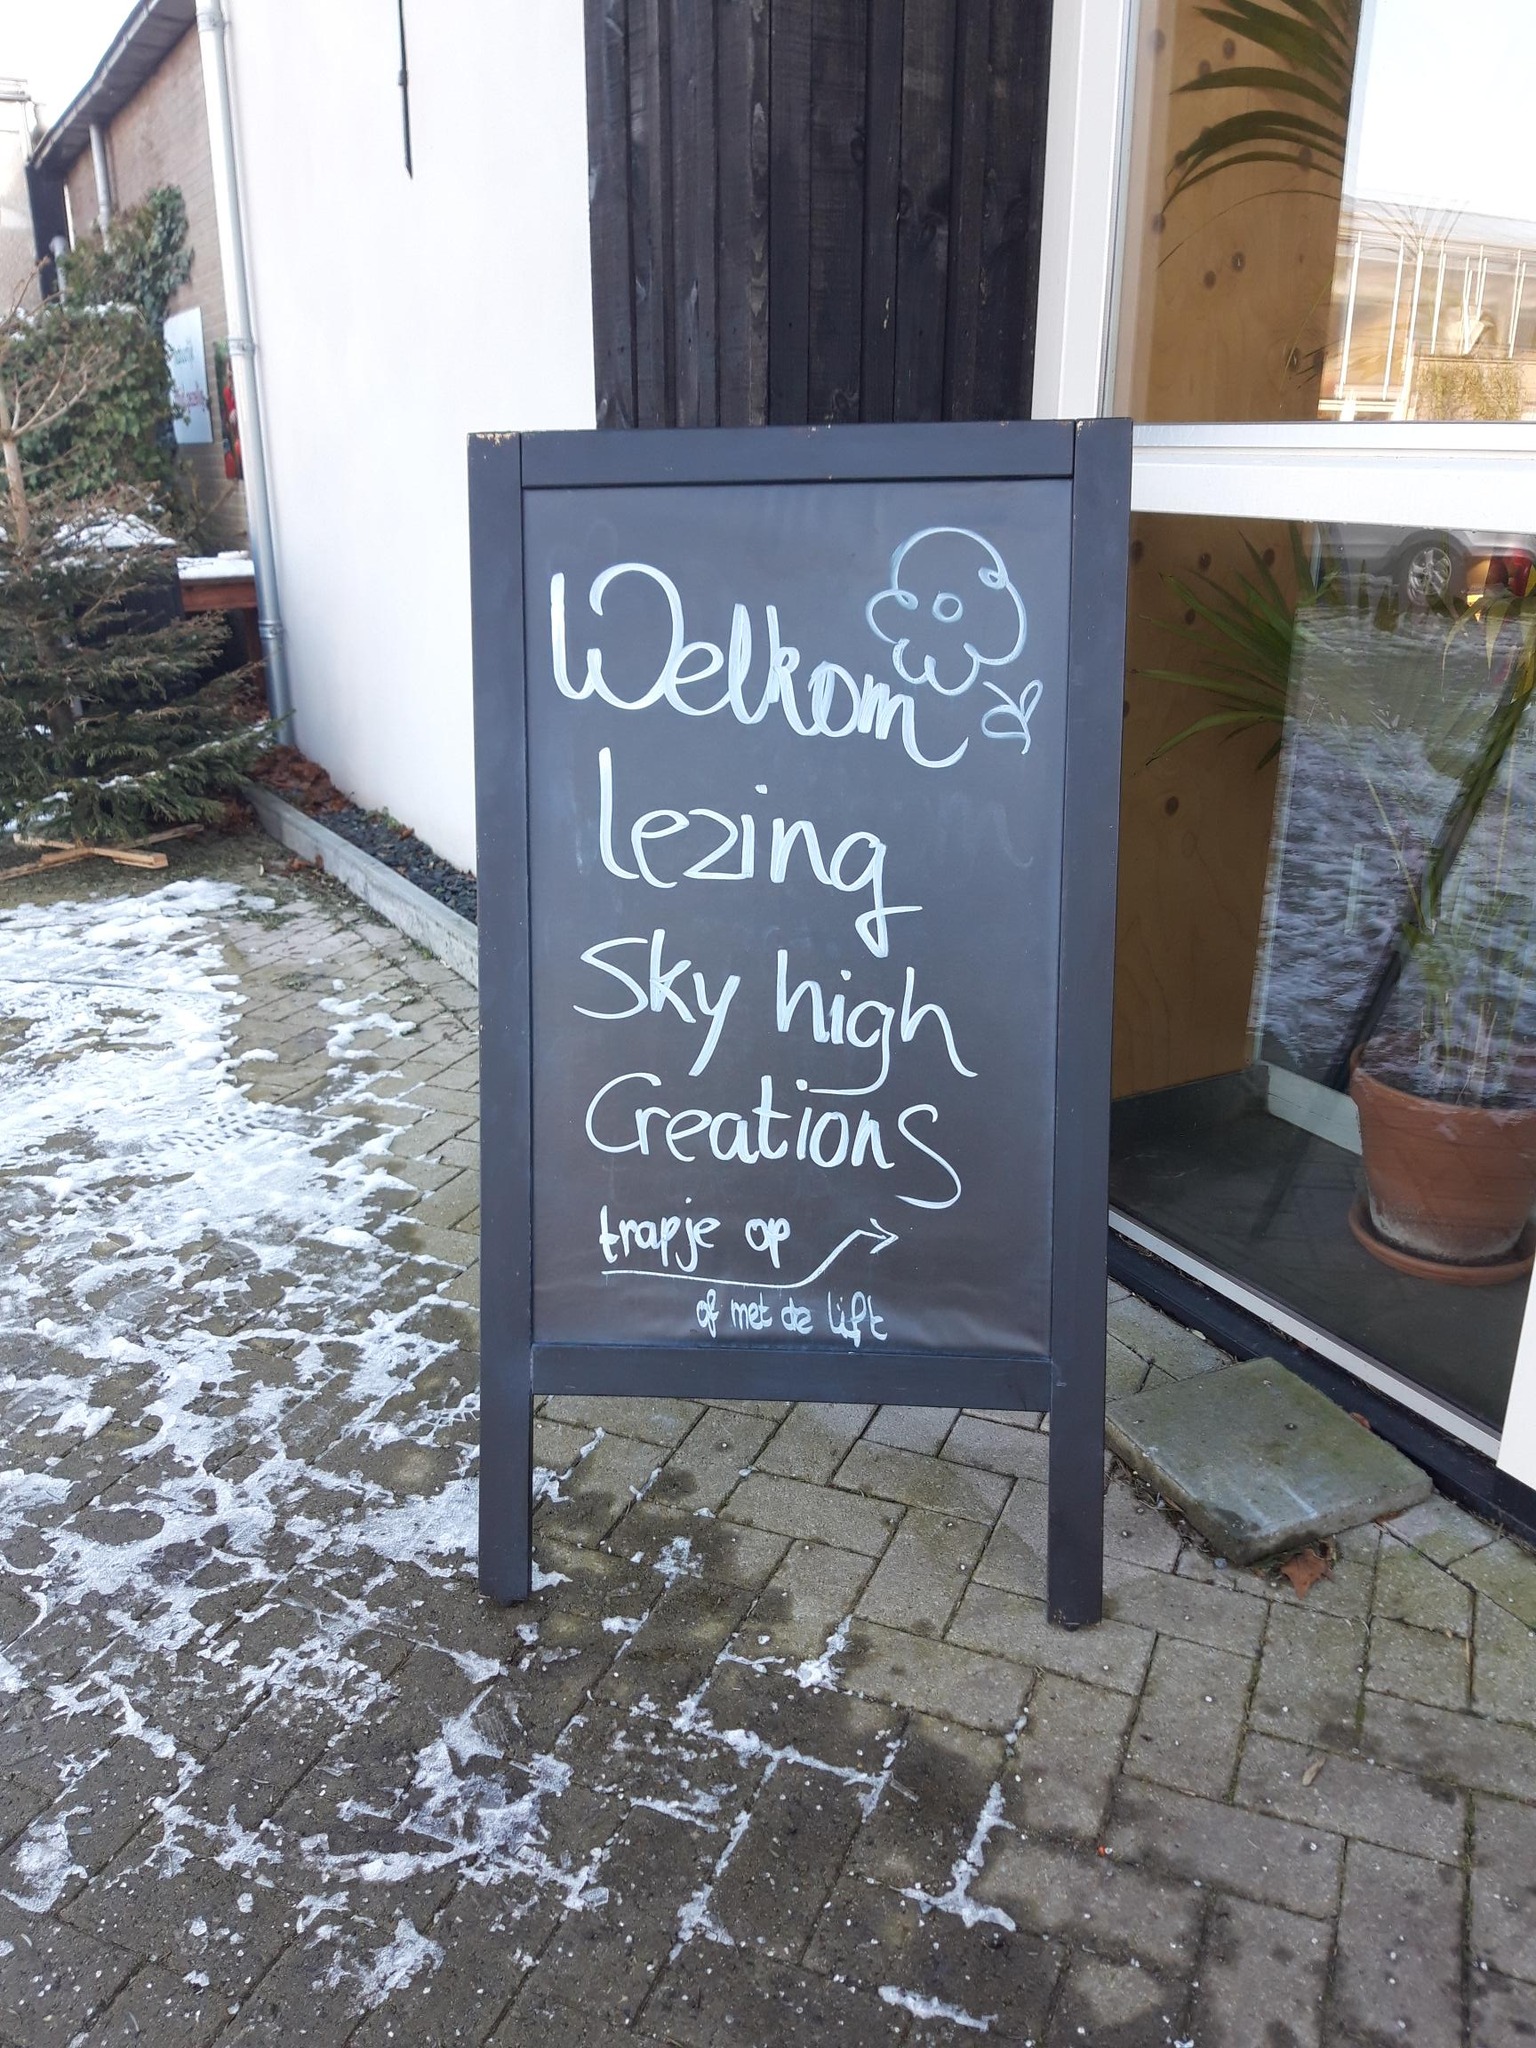 Welkom
lezing
Sky high
Creations
trapje op
of met de lift